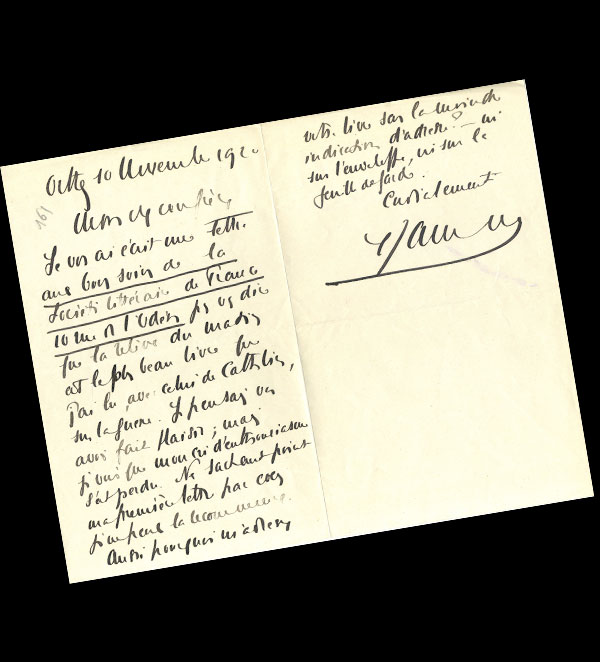 Orthez 10 Novembre 192
161
Mon cher confrère
Je vous ai écrit une lettre
aux bons soins de la
Société littéraire de France
10 rue de l'Odéon pr vous dire
que la relève du matin
est le plus beau livre que
j'ai lu, avec celui de
sur la guerre. Je pensais vous
avoir fait plaisir ; mais
je vois que mon cri d'enthousiasme
s'est perdu. Ne sachant point
ma première lettre par coeur
la recommencer.
Aussi pourquoi m'adresser
votre livre sans la moindre
indication d'adresse ? — ni
sur l'enveloppe, ni sur la
feuille de garde.
Cordialement
Jammes